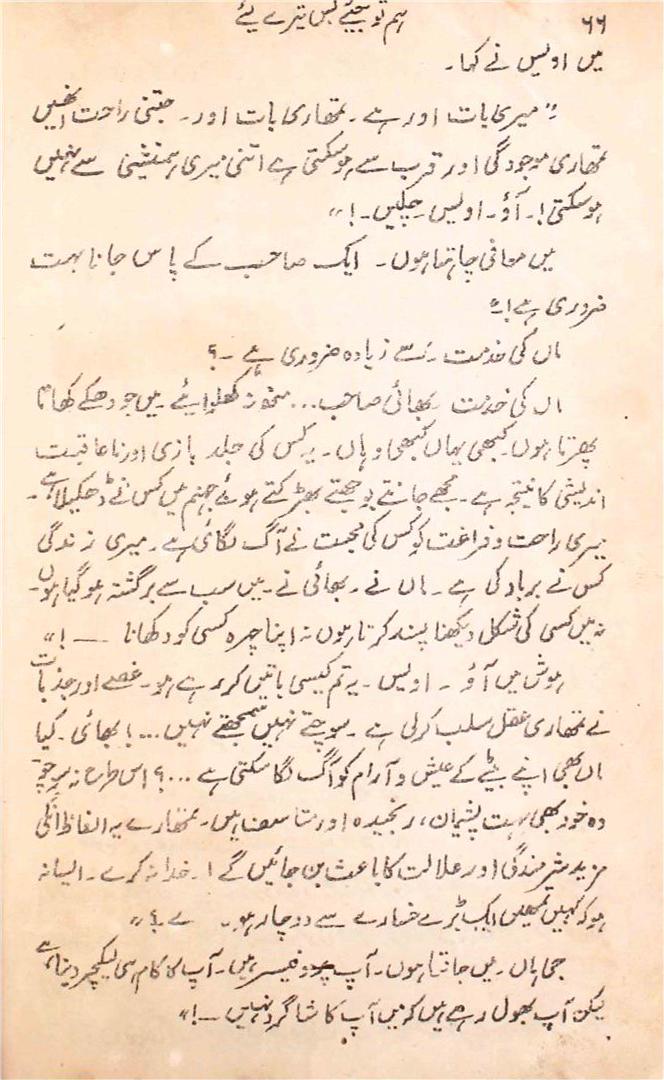 ۶۶
ہم تو جئیے بس تیرے لیے
میں اویس نے کہا۔
”میری بات اور ہے۔ تمھاری بات اور۔ جتنی راحت انھیں
تمھاری موجودگی اور قرب سے ہوسکتی ہے اتنی میری ہمنشینی سے نہیں
ہوسکتی!۔ آؤ۔ اویس چلیں۔!“
میں معافی چاہتا ہوں۔ ایک صاحب کے پاس جانا بہت
ضروری ہے!“
ماں کی خدمت سے زیادہ ضروری ہے۔؟
ماں کی خدمت بھائی صاحب... منھ نہ کھلوائیے۔ میں جو دھکے کھاتا
پھرتا ہوں کبھی یہاں کبھی وہاں۔ یہ کس کی جلد بازی اور ناعاقبت
اندیشی کا نتیجہ ہے۔ مجھے جانتے بوجھتے بھڑکتے ہوئے جہنم میں کس نے ڈھکیلا ہے۔
میری راحت و فراغت کو کس کی محبت نے آگ لگائی ہے۔ میری زندگی
کس نے برباد کی ہے۔ ماں نے۔ بھائی نے۔ میں سب سے برگشتہ ہوگیا ہوں۔
نہ میں کسی کی شکل دیکھنا پسند کرتا ہوں نہ اپنا چہرہ کسی کو دکھانا ۔۔!“
ہوش میں آؤ۔ اویس۔ یہ تم کیسی باتیں کر رہے ہو۔ غصے اور جذبات
نے تمھاری عقل سلب کرلی ہے۔ سوچتے نہیں سمجھتے نہیں...! بھائی۔ کیا
ماں بھی اپنے بیٹے کے عیش و آرام کو آگ لگا سکتی ہے...؟ اس طرح نہ سوچو
وہ خود بھی بہت پشیمان، رنجیدہ اور متاسف ہیں۔ تمھارے یہ الفاظ انکی
مزید شرمندگی اور علالت کا باعث بن جائیں گے!۔ خدا نہ کرے۔ ایسا نہ
ہو کہ کہیں تمھیں ایک بڑے خسارے سے دوچار ہو
جی ہاں۔ میں جانتا ہوں۔ آپ پروفیسر ہیں۔ آپ کا کام ہی لیکچر دینا ہے
لیکن آپ بھول رہے ہیں کہ میں آپ کا شاگرد نہیں۔!“